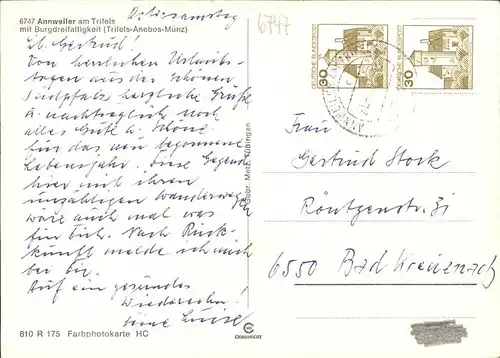 6747 Annweiler am Trifels
mit Burgdreifaltigkeit (Trifels-Anebos-Münz)
Ostersamstag
6747
Lb. Gertrud!
Von herrlichen Urlaubs-
tagen aus der schönen
Südpfalz herzliche Grüße
u. nachträglich noch
alles Gute u. Schöne
für das neu begonnene
Lebensjahr. Eine Gegend
hier mit ihren
unzähligen Wanderwegen
wäre auch mal was
für Dich. Nach Rück-
kunft melde ich mich
bei Dir.
Auf ein gesundes
Wiedersehen!
Deine Luise
810 R 175 Farbphotokarte HC
Gebr. Metz, Tübingen
CEKAWACHE
DEUTSCHE BUNDESPOST
30
DEUTSCHE BUNDESPOST
30
Frau
Gertrud Stork
Röntgenstr. 31
6550 Bad Kreuznach